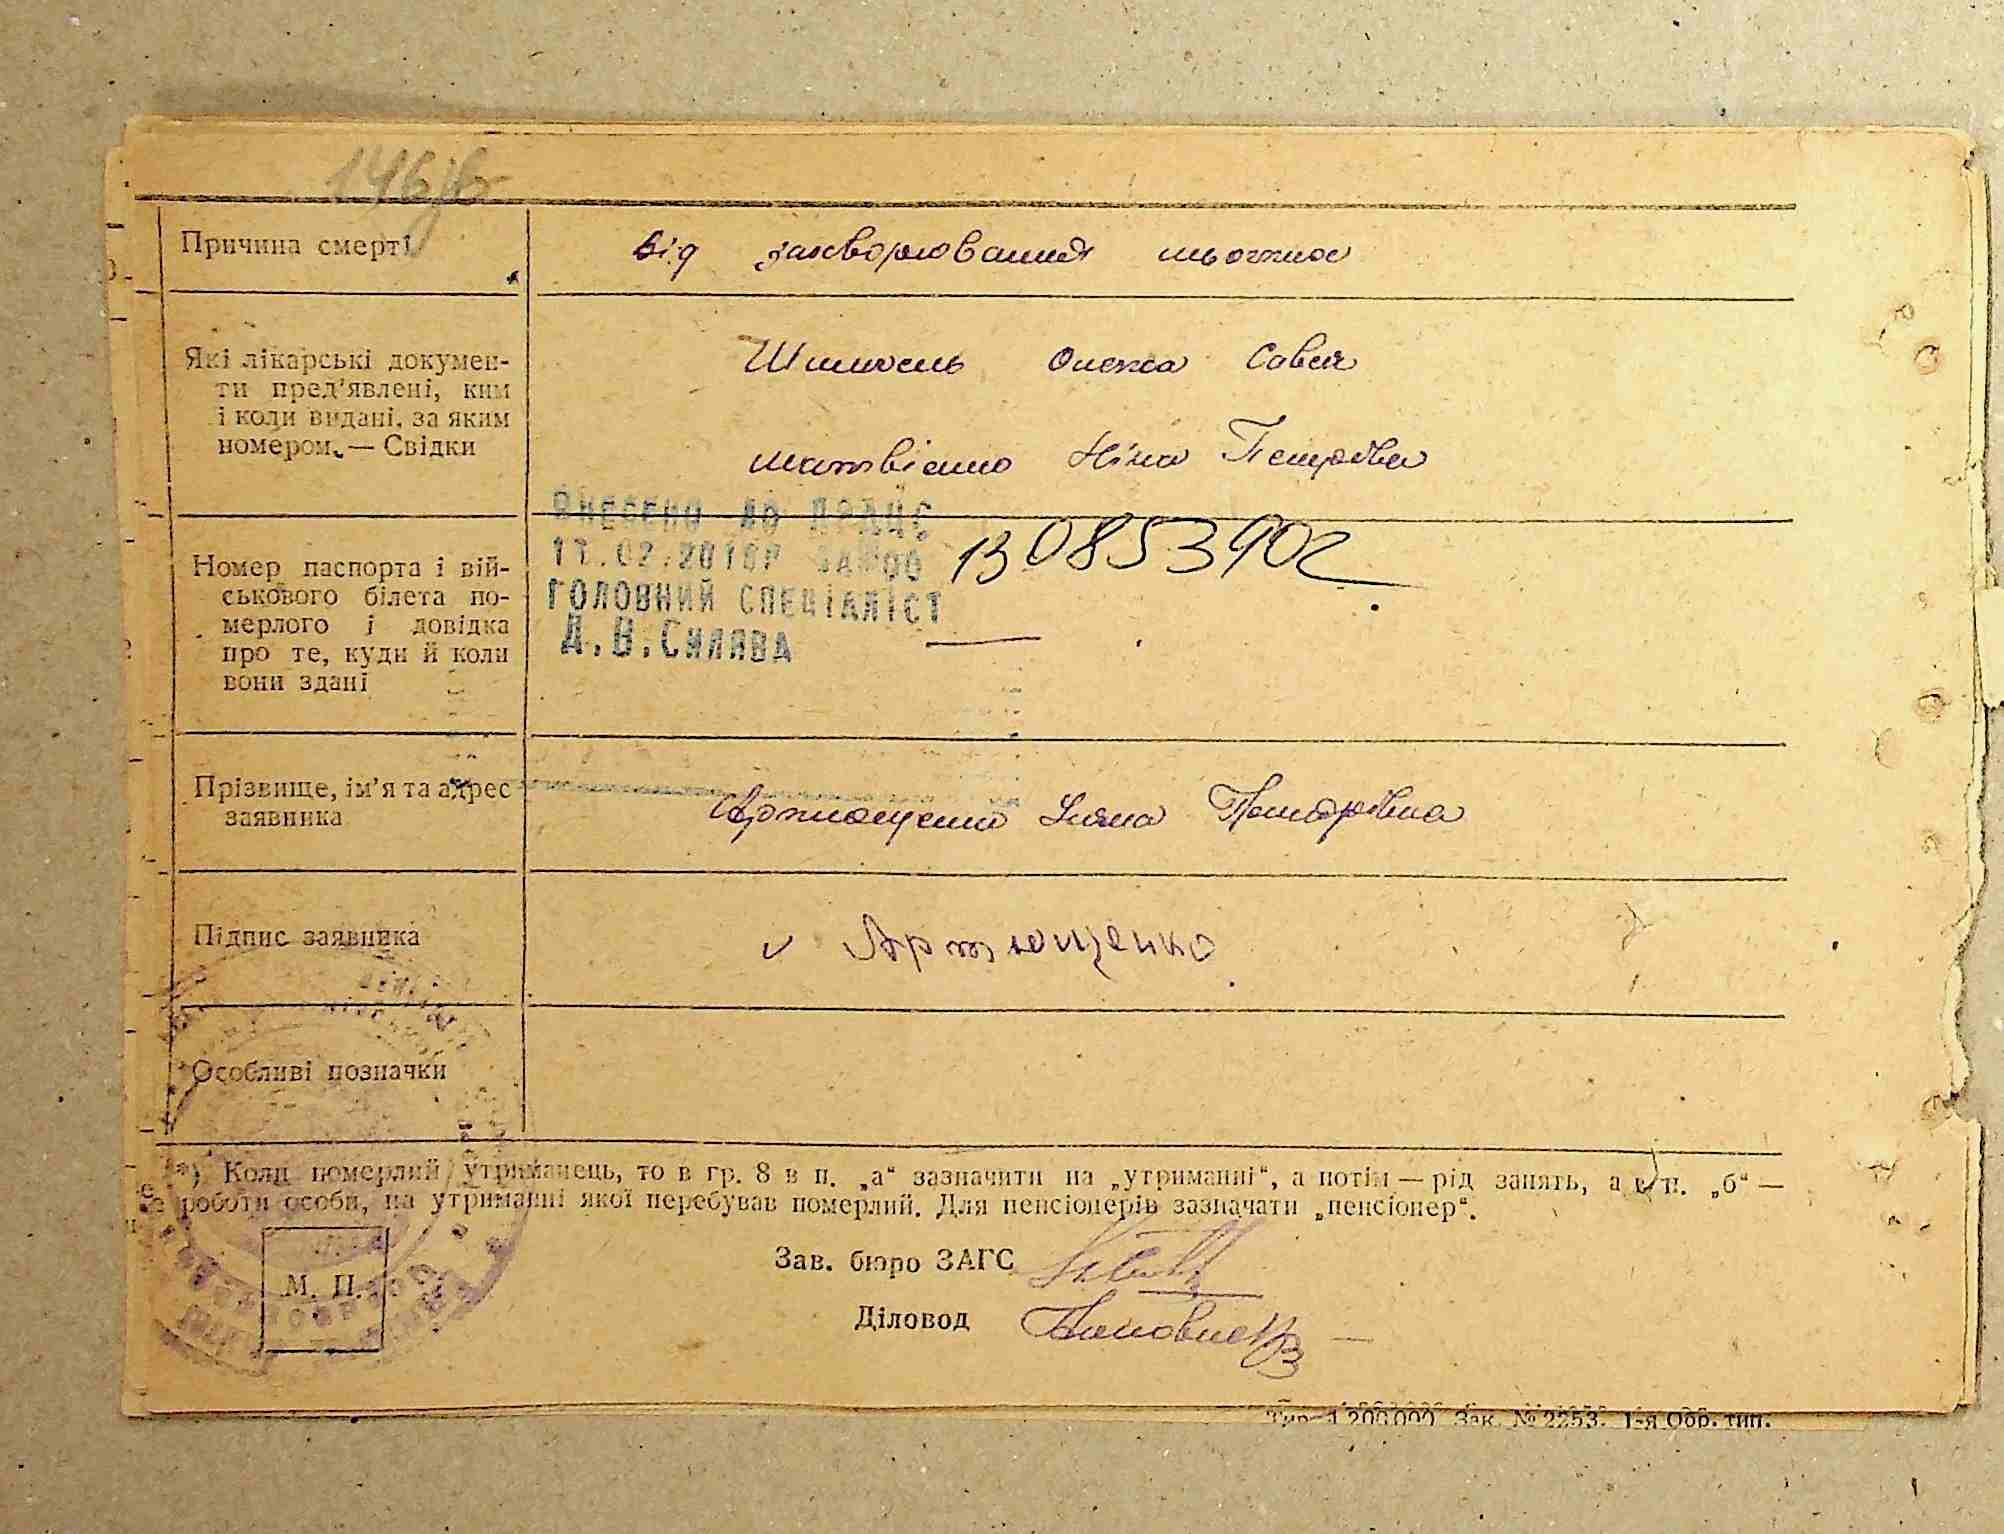 146
Причина смерті
від захворювання
Які лікарські докумен-
ти пред’явлені, ким
і коли видані, за яким
номером. — Свідки
Савич
Ніна Петрівна
ВНЕСЕНО ДО ДРАЦС
11.02.2016Р
ГОЛОВНИЙ СПЕЦІАЛІСТ
Д.В.Силява
130853902
Номер паспорта і вій-
ськового білета по-
мерлого і довідка
про те, куди й коли
вони здані
—
Прізвище, ім’я та адрес
заявника
Артющенко Уляна Петрівна
Підпис заявника
Артющенко
Особливі позначки
*) Коли померлий утриманець, то в гр. 8 в п. „а“ зазначити на „утриманні“, а потім — рід занять, а в п. „б“ —
роботи особи, на утриманні якої перебував померлий. Для пенсіонерів зазначати „пенсіонер“.
М. П.
Зав. бюро ЗАГС
Діловод
Тир. 1.200.000. Зак. № 2253. 1-я Обр. тип.